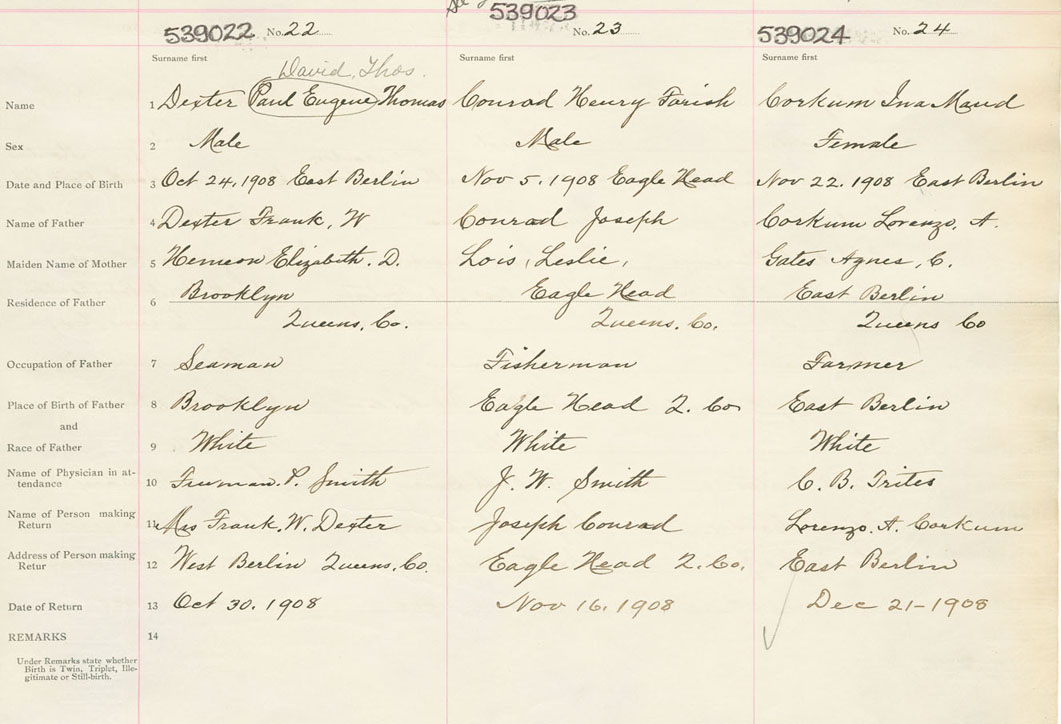 See
539022 No. 22
539023 No. 23
539024 No. 24
Surname first Surname first Surname first
David, Thos.
Name 1 Dexter Paul Eugene Thomas Conrad Henry Parish Corkum Ina Maud
Sex 2 Male Male Female
Date and Place of Birth 3 Oct 24, 1908 East Berlin Nov 5, 1908 Eagle Head Nov 22. 1908 East Berlin
Name of Father 4 Dexter Frank, W Conrad Joseph Corkum Lorenzo, A.
Maiden Name of Mother 5 Hemeon Elizabeth. D. Lois, Leslie, Gates Agnes, C.
Residence of Father 6 Brooklyn Eagle Head East Berlin
Queens, Co. Queens, Co, Queens Co
Occupation of Father 7 Seaman Fisherman Farmer
Place of Birth of Father 8 Brooklyn Eagle Head Q. Co East Berlin
and
Race of Father 9 White White White
Name of Physician in at-
tendance 10 Freeman. P. Smith J. W. Smith C. B. Trites
Name of Person making
Return 11 Mrs Frank, W. Dexter Joseph Conrad Lorenzo. A. Corkum
Address of Person making
Retur 12 West Berlin Queens, Co. Eagle Head Q. Co, East Berlin
Date of Return 13 Oct 30, 1908 Nov 16, 1908 Dec 21-1908
REMARKS 14
Under Remarks state whether
Birth is Twin, Triplet, Ille-
gitimate or Still-birth.